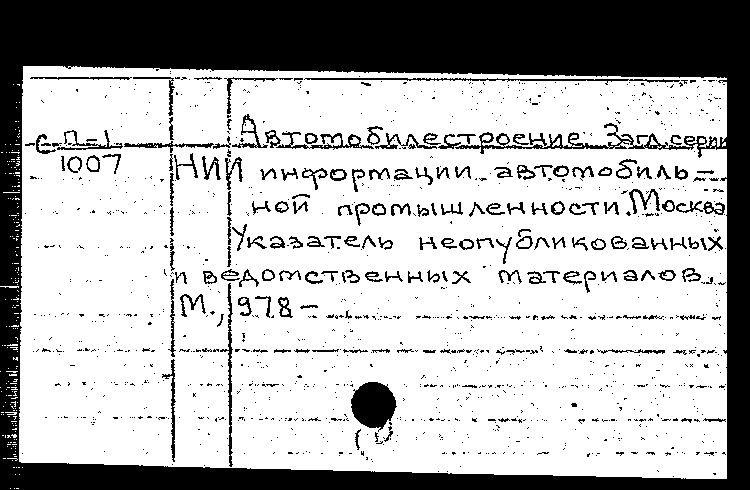 Автомобилестроение. Загл. серии
С П-1
1007
НИИ информации автомобиль-
ной промышленности. Москва
Указатель неопубликованных
и ведомственных материалов.
М., 1978 –